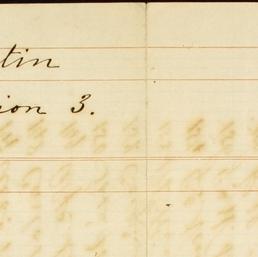 tin
ion 3.